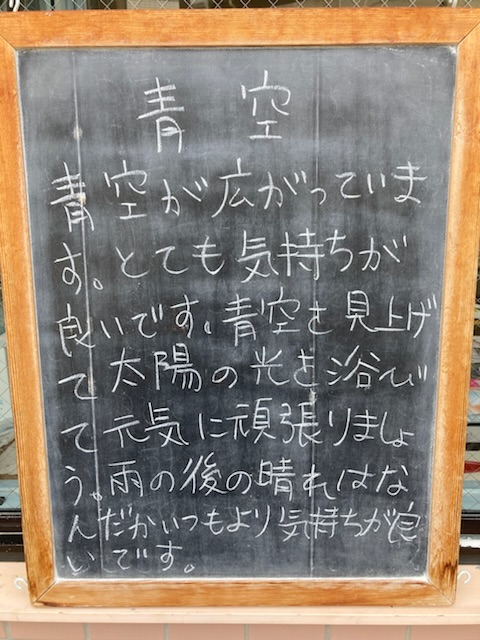 青空
青空が広がっていま
す。とても気持ちが
良いです。青空を見上げ
て太陽の光を浴び
て元気に頑張りましょ
う。雨の後の晴れはな
んだかいつもより気持ちが良
いです。